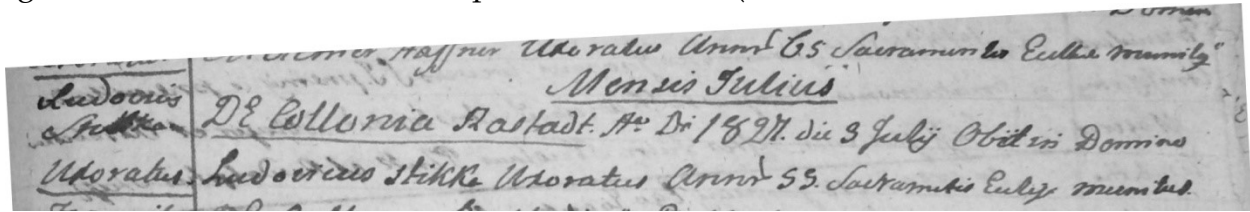 Haffner Uxoratus Annor 65 Sacramentis Eccllae munitq
Mensis Julius
Ludovicus Stikke
DE Collonia Rastadt. Ao Di 1827. die 3 Julij Obiit in Domino
Uxoratus. Ludovicus Stikke Uxoratus Annor 55. Sacrametis Eccliae munitus.